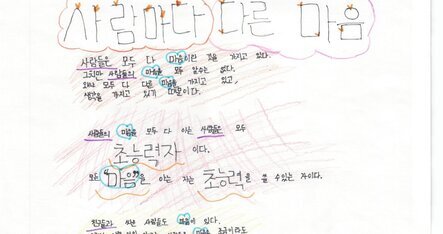 사람마다 다른 마음
사람들은 모두 다 마음이란 것을 가지고 있다.
그치만 사람들의 마음을 모두 알수는 없다.
왜냐 모두 다 다른 마음을 가지고 있고,
생각을 가지고 있기 때문이다.
사람들의 마음을 모두 다 아는 사람들은 모두
초능력자 이다.
모든 "마음"을 아는 자는 초능력을 쓸 수 있는 자이다.
친구들과 싸운 사람들도 마음이 있다.
마음을 조금이라도